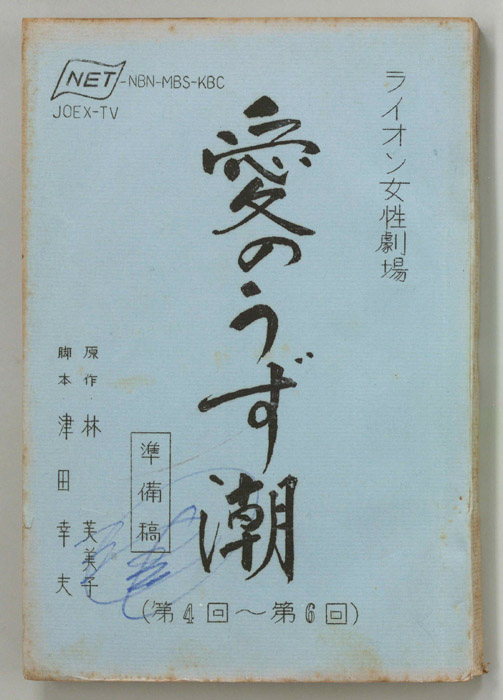 NET-NBN-MBS-KBC
JOEX-TV
ライオン女性劇場
愛のうず潮
原作・林 芙美子
脚本 津田幸夫
準備稿
(第4回～第6回)